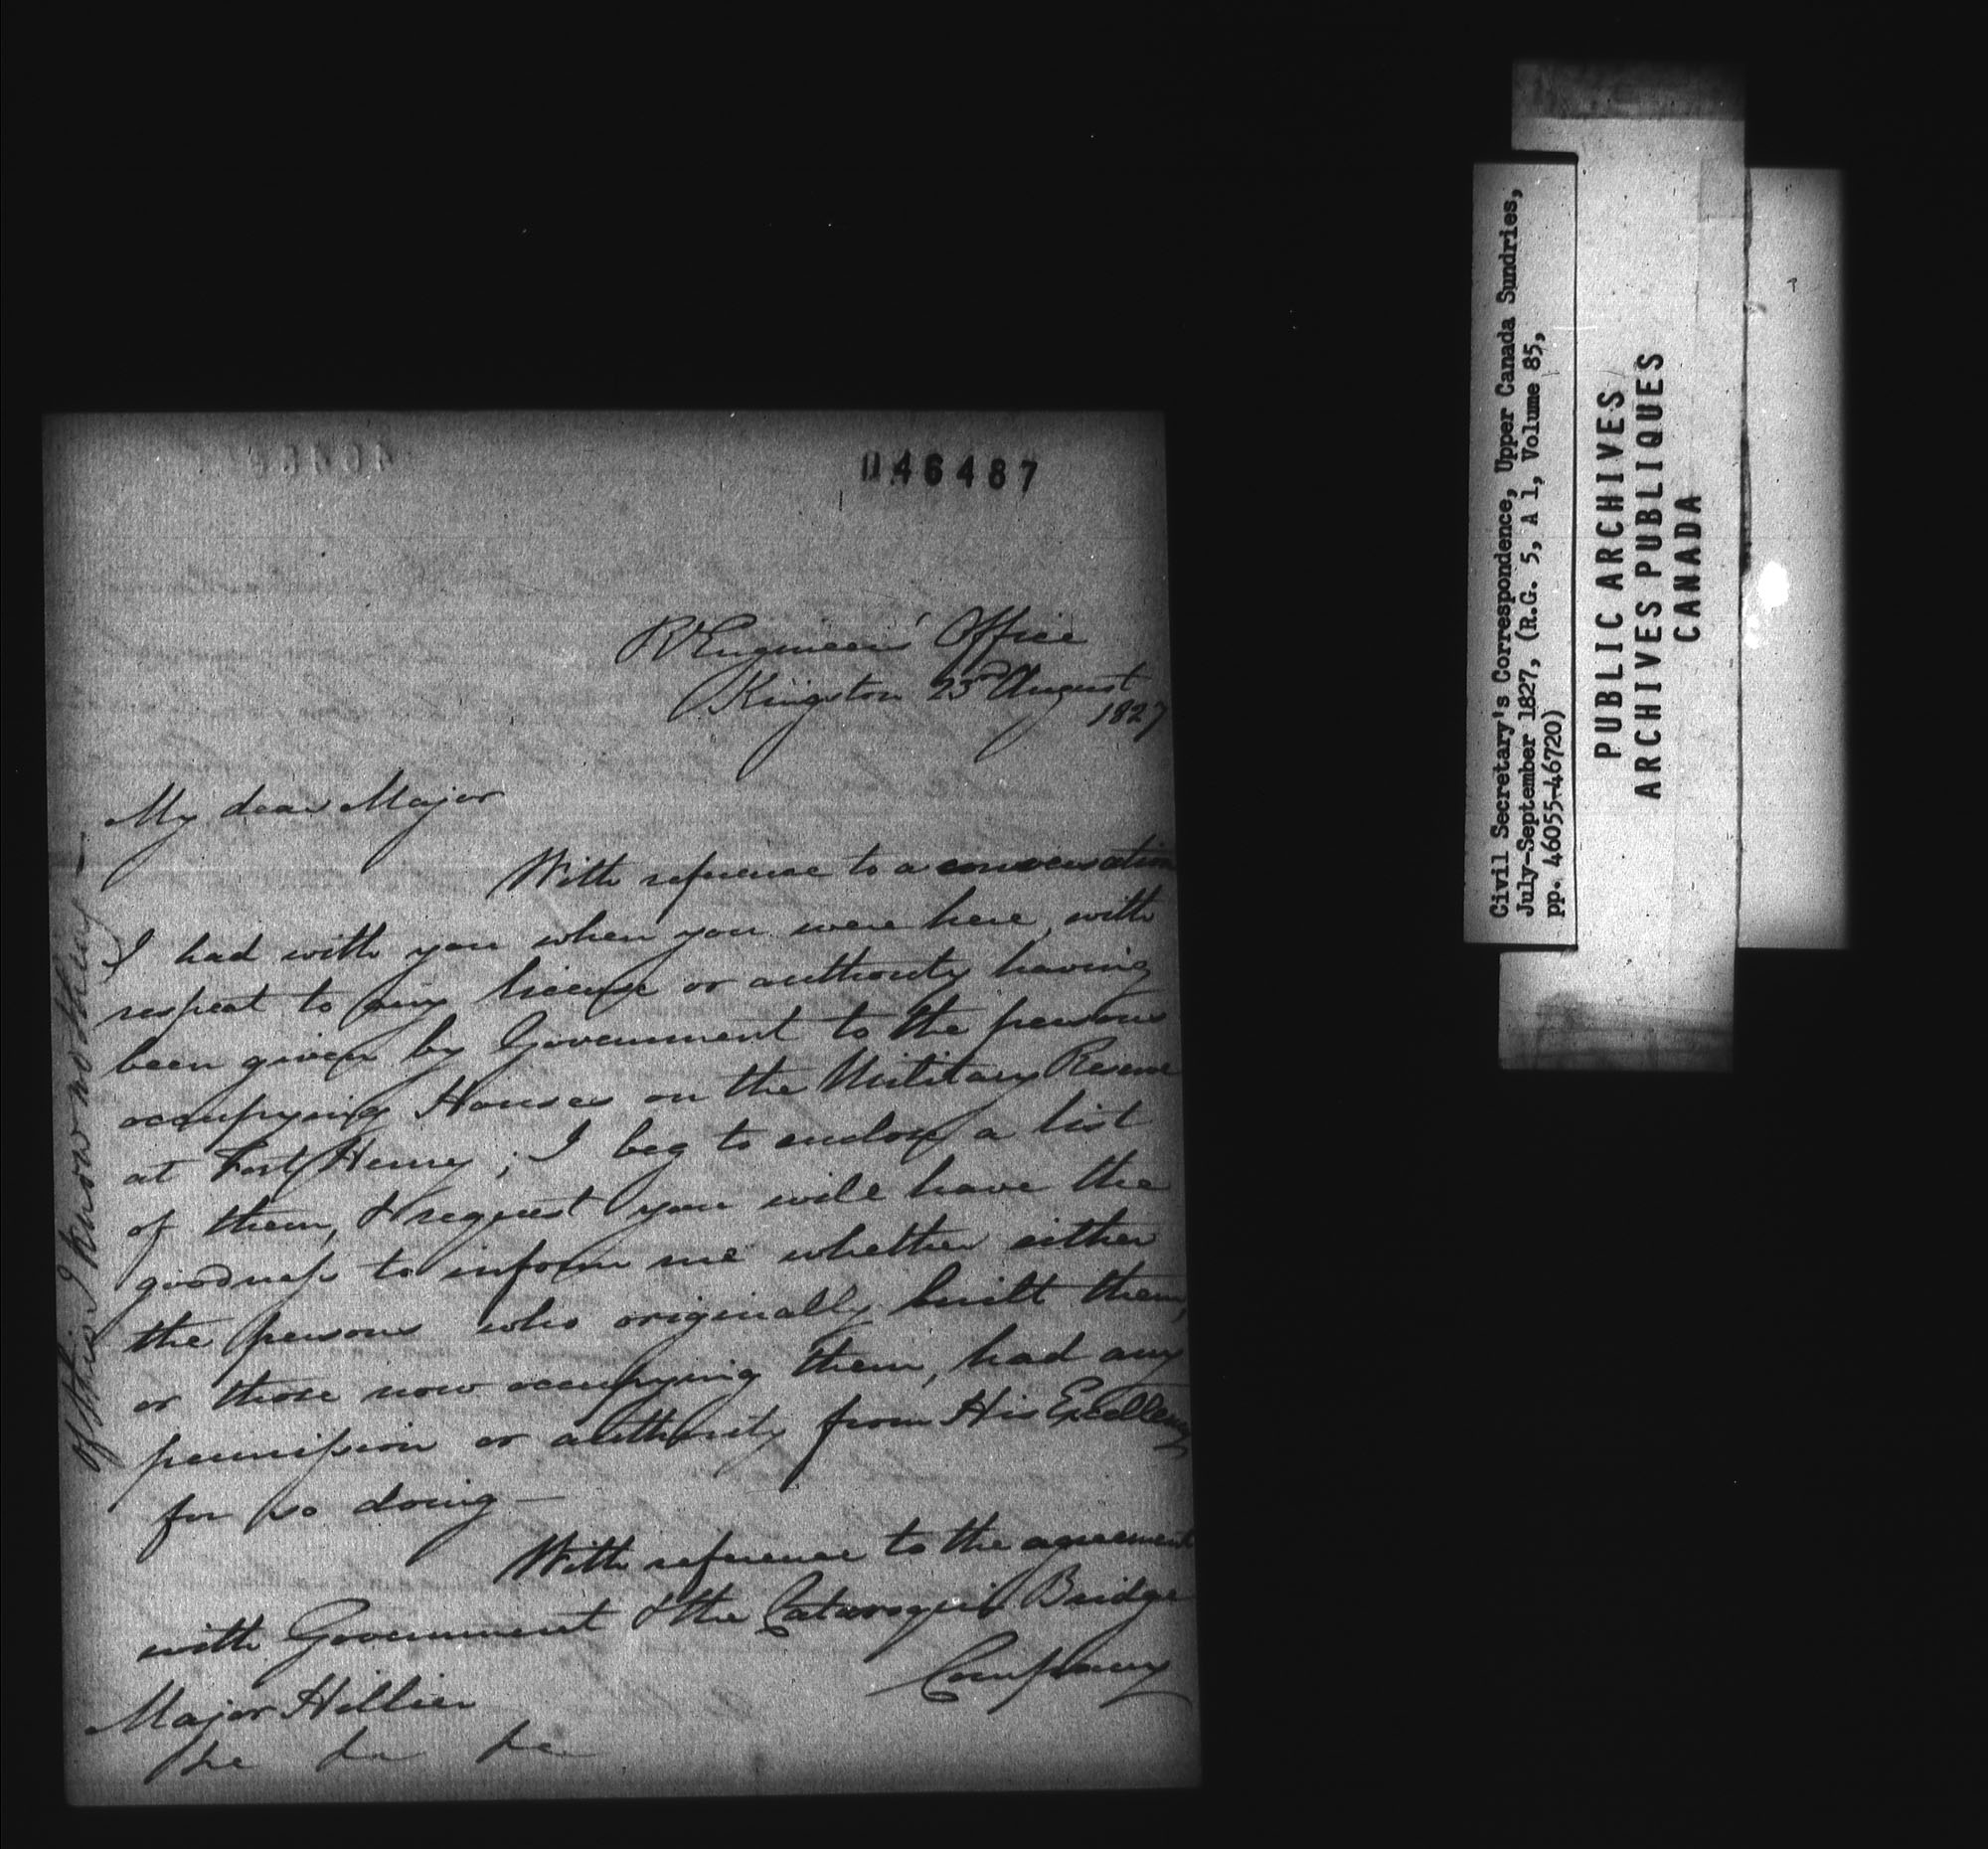 046487
Rl Engineers' Office
Kingston 23rd August
1827
My dear Major
With reference to a conversation
I had with you when you were here, with
respect to any license or authority having
been given by Government to the persons
occupying Houses on the Military Reserve
at Fort Henry; I beg to enclose a list
of them, & request you will have the
goodness to inform me whether either
the persons who originally built them,
or those now occupying them, had any
permission or authority from His Excellency
for so doing —
With reference to the agreement
with Government & the Cataraqui Bridge
Company
Major Hillier
&c &c &c
Of this I know nothing —
Civil Secretary's Correspondence, Upper Canada Sundries,
July-September 1827, (R.G. 5, A 1, Volume 85,
pp. 46055-46720)
PUBLIC ARCHIVES
ARCHIVES PUBLIQUES
CANADA